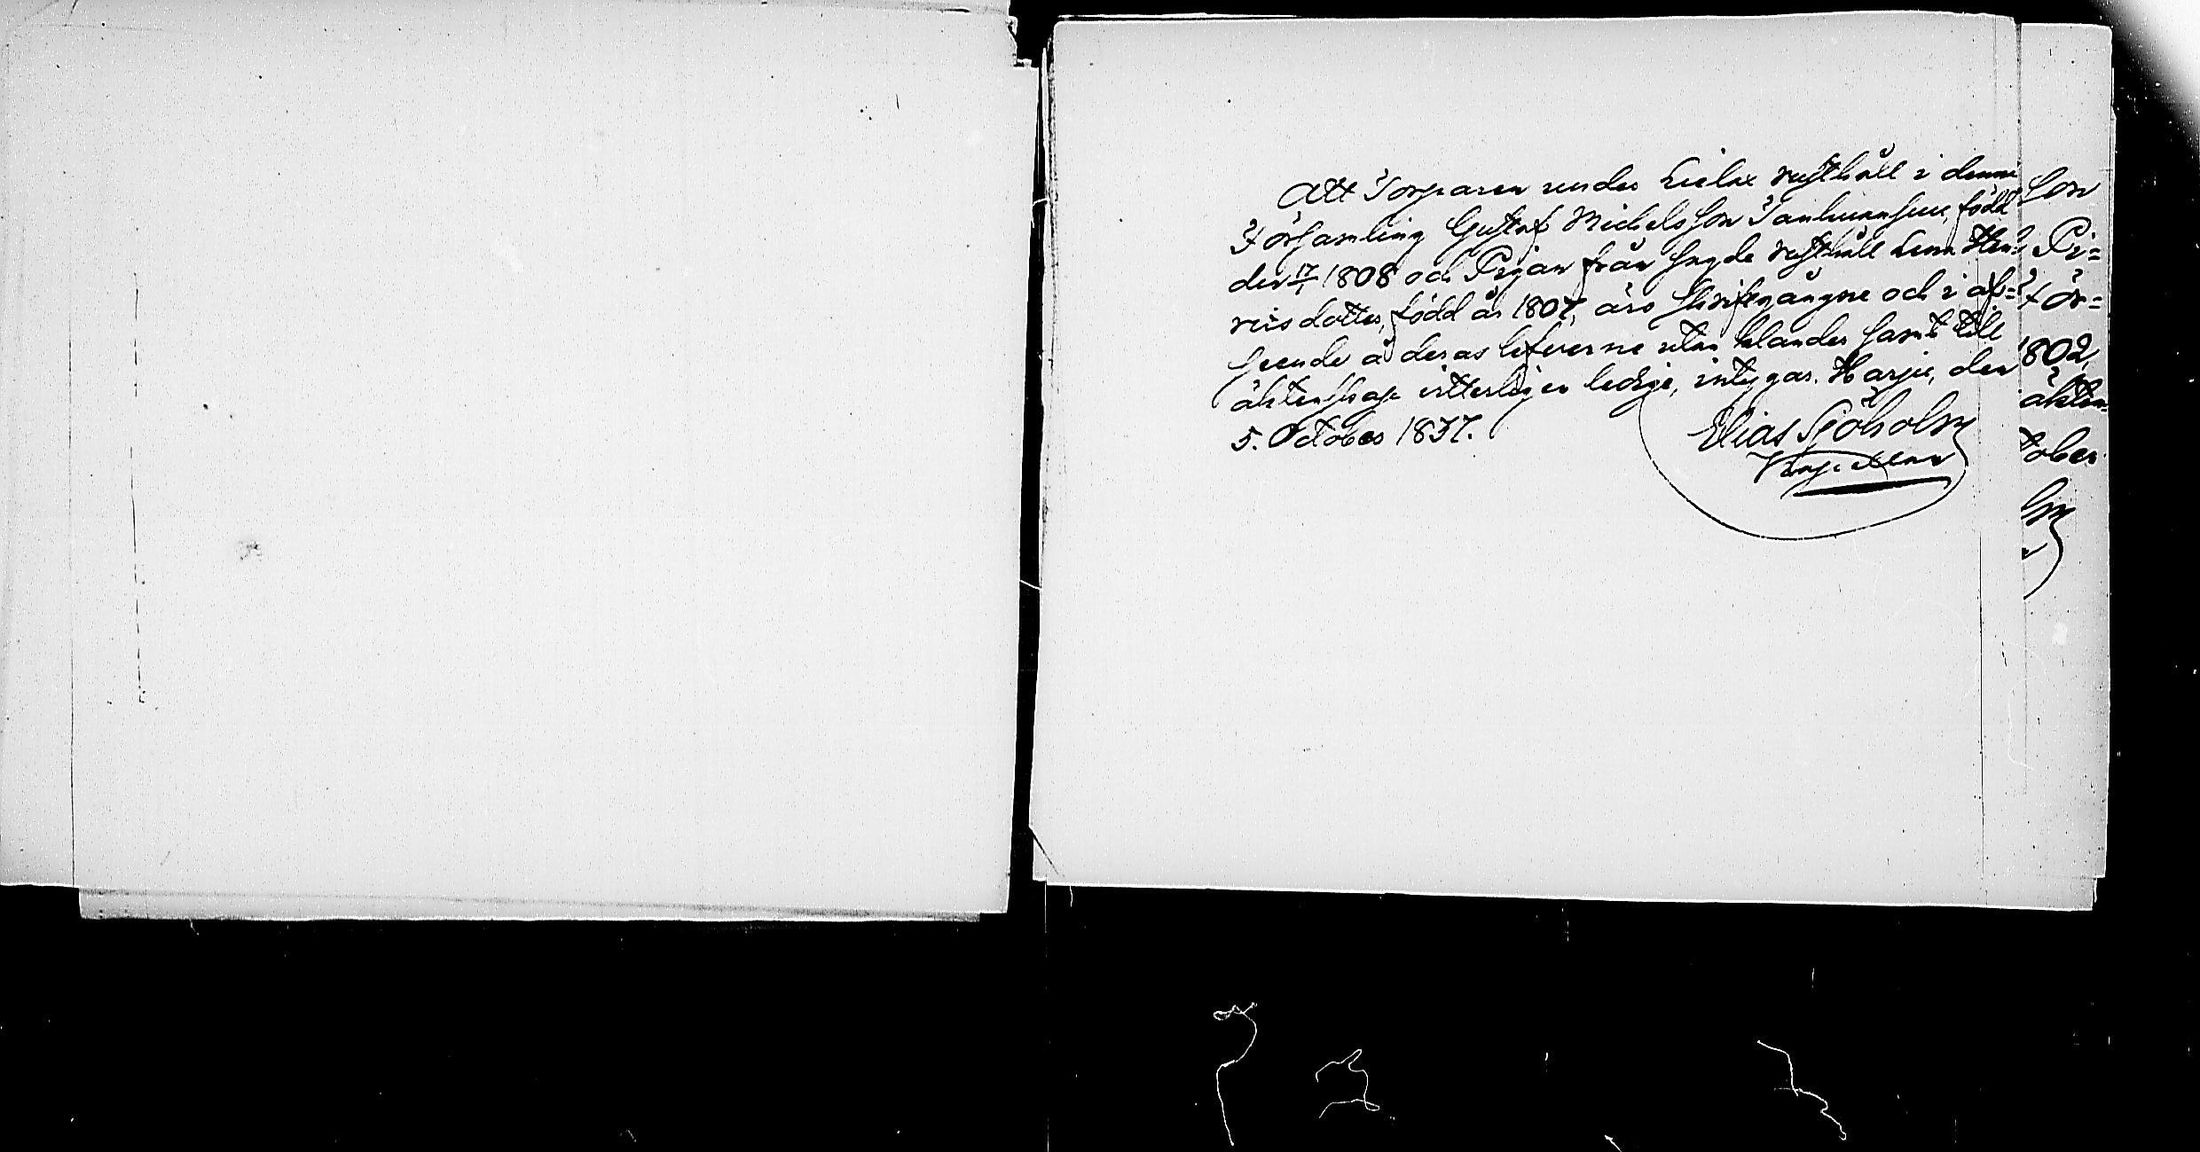 Att Torparen under Lielax rusthåll i denna
Församling Gustaf Michelsson Tanhuanpuu, född
den 17/1 1808 och Pigan från sagde rusthåll Lena Hen-
riksdotter, född år 1807, äro skriftgångne och i af-
seende å deras lefverne utan klander samt till
äktenskap ytterligen ledige, intygar. Karjis, den
5. October 1837.
Elias Sjöholm
Kapellan
son
Pi-
För-
1802,
äkten-
tober
lm